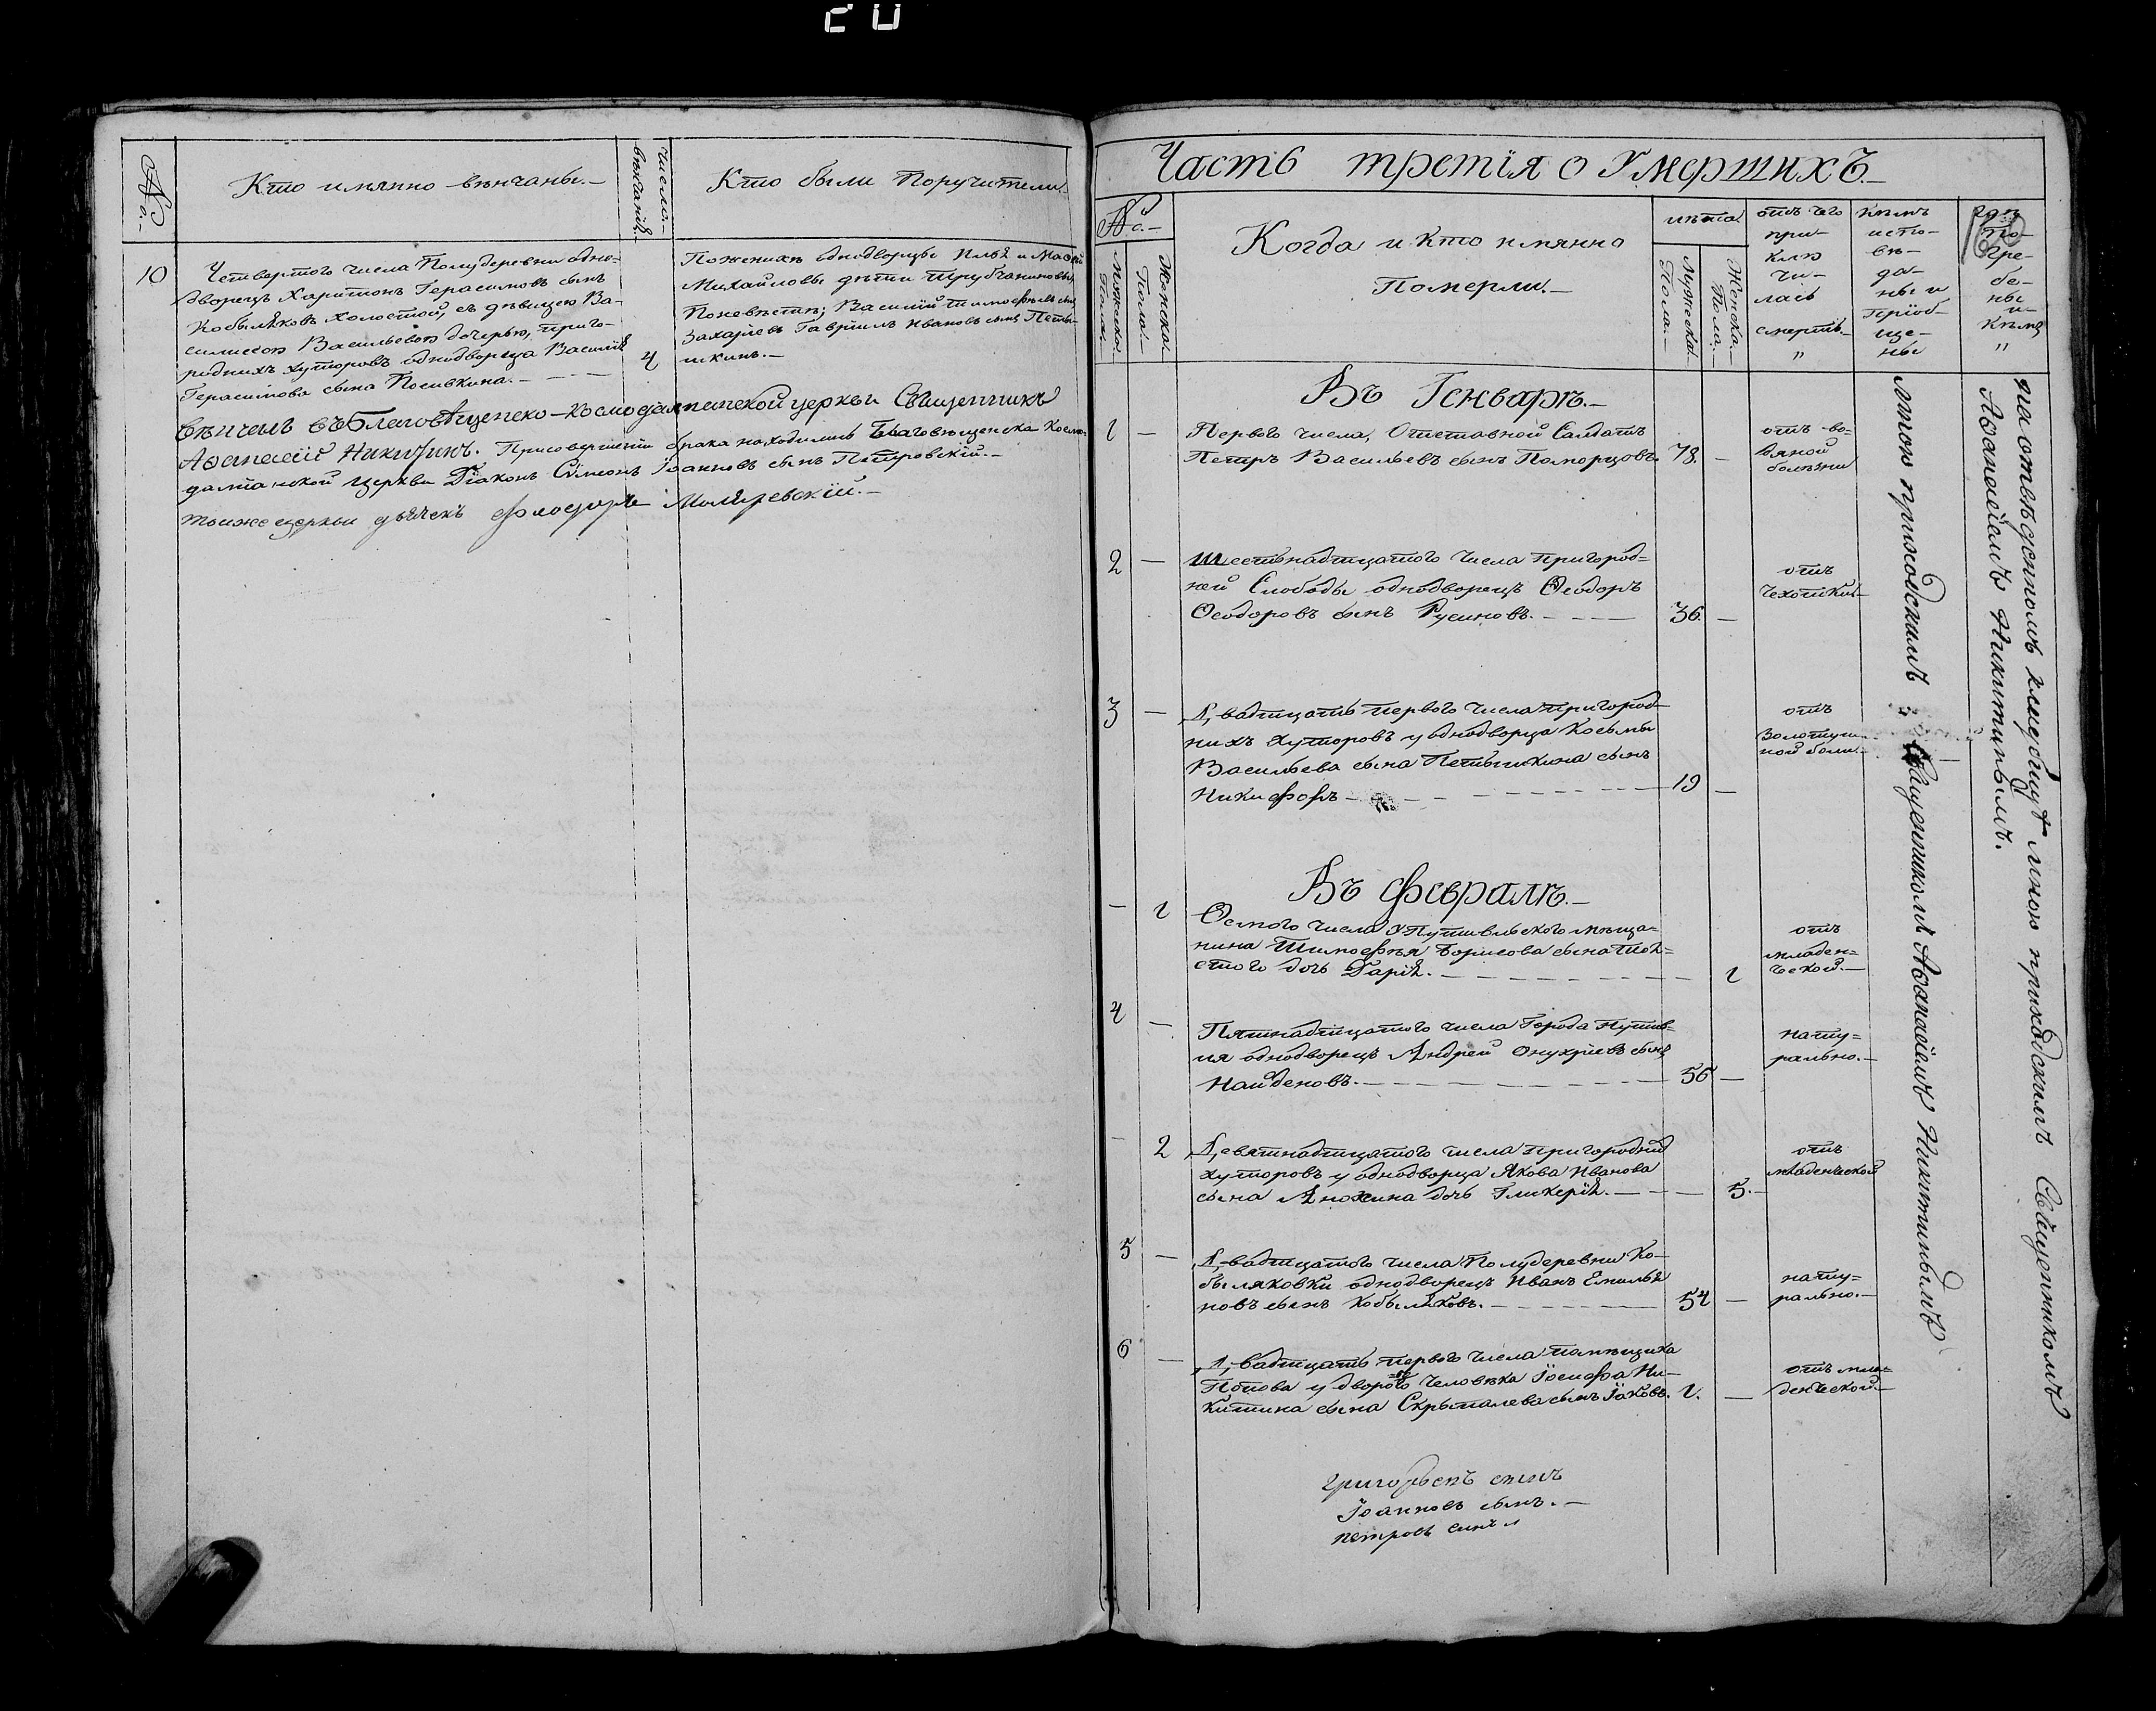 20
№
Кто имянно вѣнчаны.—
число вѣнчанія
Кто были Поручители.
10
Четвертого числа Полудеревни одно-
дворецъ Харитонъ Герасимовъ сынъ
Кобыляковъ холостой, съ дѣвицею Ва-
силисою Васильевою дочерью, приго-
роднихъ хуторовъ однодворца Василія
Герасимова сына
4
Поженихѣ однодворцы Илья и
Михайловы дѣти
Поневѣстѣ; Василій Тимофѣевъ сынъ
Захаріевъ Гавріилъ Ивановъ сынъ Петы-
шкинъ.—
Вѣнчалъ Благовѣщенско-Космодаминской церкви Священникъ
Афанасій Никитинъ. Присовершеніи брака находились Благовѣщенска Космо-
даміанской церкви Діаконъ Сімеонъ Іоанновъ сынъ Петровскій.—
тоижецеркви дьячекъ Феодоръ
Часть третія о Умершихъ.—
№
Мужеска Пола.—
Женска Пола.—
Когда и Кто имянно
Померли.—
лѣта.
Мужеска Пола.—
Женска Пола.—
отъ чего
при-
клю
чи-
лась
смерть
"
Кѣмъ
испо-
вѣ-
да-
ны и
пріоб-
ще-
ны
гдѣ
По-
гре-
бе-
ны
и
Кѣмъ
"
Въ Генварѣ.—
1 —
Первого числа, Отставной Салдатъ
Петръ Васильевъ сынъ Поморцовъ. 78. —
отъ во-
дяной
болѣзни
2 —
Шестьнадцатого числа Пригород=
ней Слободы однодворецъ Ѳеодоръ
Ѳеодоровъ сынъ Русиновъ. — 36. —
отъ
чехотки.—
3 —
Двадцать первого числа пригород-
нихъ хуторовъ у однодворца Косьмы
Васильева сына Петышкина сынъ
Никифоръ — 19 —
отъ
Золотуш-
ной боли.
Въ Февралѣ.—
— 1
Осмого числа У Путивльского мѣща=
нина Тимофѣя Борисова сына Тол=
стого дочь Дарія. — 1
отъ
младен=
ческой.—
4 —
Пятнадцатого числа Города Путив=
ля однодворецъ Андрей Онухріевъ сынъ
Найденовъ. — 56 —
нату=
рально.—
— 2
Девятнадцатого числа пригородній
хуторовъ у однодворца Якова Иванова
сына Анохина дочь Гликерія. — 5. —
отъ
младенческой
5 —
Двадцатого числа Полудеревни Ко-
быляковки однодворецъ Иванъ Емилья
новъ сынъ Кобыляковъ. — 54 —
нату=
рально.—
6 —
Двадцать первого числа помѣщика
Попова у дворого человѣка Іосифа Ни-
китина сына Скрыпалева сынъ Іаковъ. 1. —
отъ мла=
денческой.—
мною приходскимъ Священникомъ Афанасіемъ Никитинымъ
на отвѣденномъ кладбищѣ мною приходскимъ Священникомъ
Афанасіемъ Никитинымъ.
Григорьевъ сынъ
Іоанновъ сынъ.—
петровъ сынъ